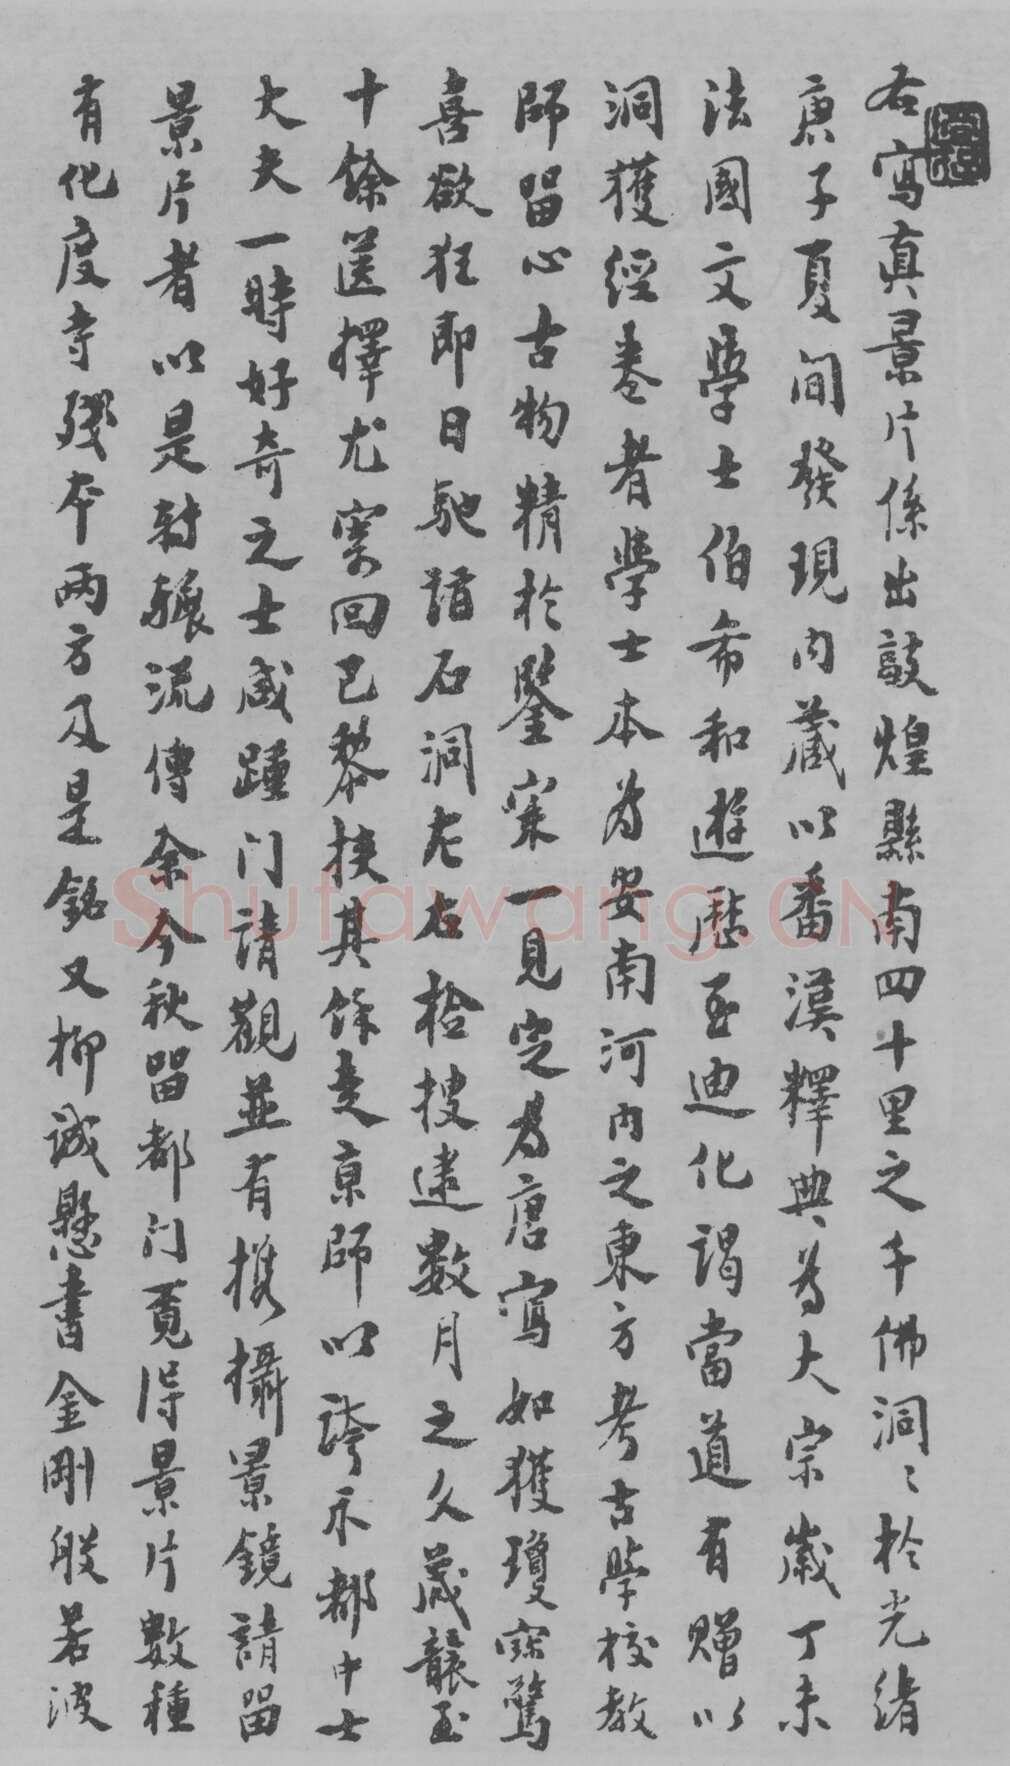 右寫真景片係出敦煌縣南四十里之千佛洞〻於光緒
庚子夏間發現內藏以番漢釋典為大宗歲丁未
法國文學士伯希和遊歷至迪化謁當道有贈以
洞獲經卷者學士本為安南河內之東方考古學校教
師留心古物精於鑒察一見定為唐寫如獲瓊寶驚
喜欲狂即日馳詣石洞左右拾搜逮數月之久歲襲至
十餘篋擇尤寀回巴黎挾其餘走京師以誇示都中士
大夫一時好奇之士咸踵门請觀並有携攝景鏡請留
景片者以是對輾流傳余今秋留都门覓得景片數種
有化度寺殘本兩方及是銘又柳誠懸書金剛般若波
Shufawang.CN